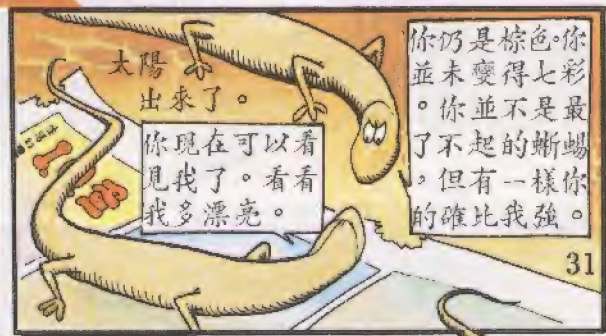 太陽
出來了。
你現在可以看
見我了。看看
我多漂亮。
你仍是棕色。你
並未變得七彩
。你並不是最
了不起的蜥蜴
，但有一樣你
的確比我強。
31